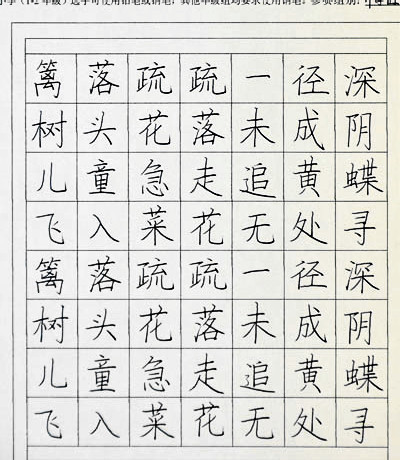 (1-2年级)选手可使用铅笔或钢笔,其他年级组均要求使用钢笔。参项组别:
篱落疏疏一径深
树头花落未成阴
儿童急走追黄蝶
飞入菜花无处寻
篱落疏疏一径深
树头花落未成阴
儿童急走追黄蝶
飞入菜花无处寻